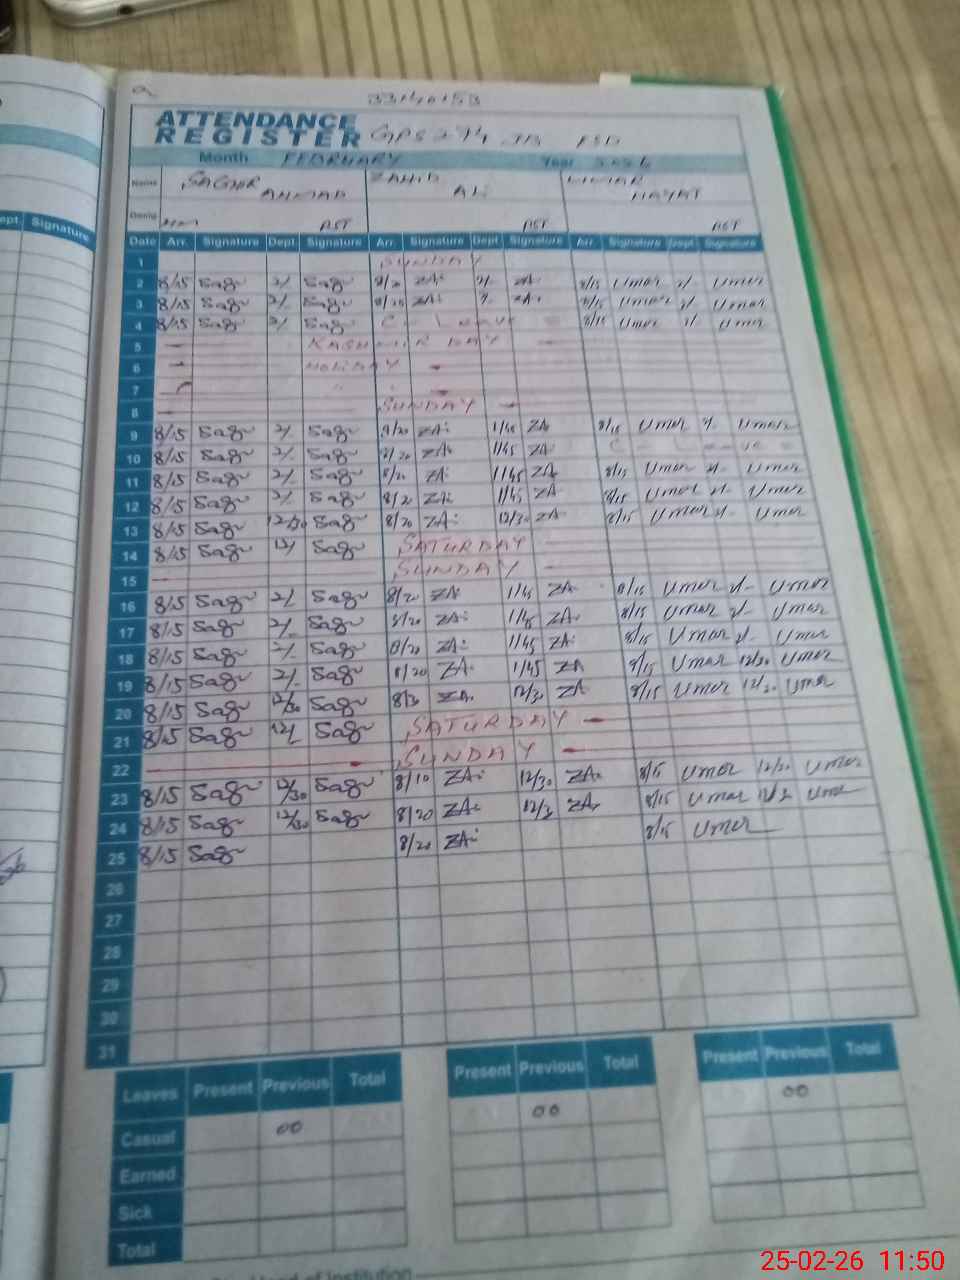 33140153
ATTENDANCE
REGISTER GPS 274 JB FSD
Month FEBRUARY Year 2026
Name SAGHIR AHMAD ZAHID ALI UMAR HAYAT
PST PST
Date Arr. Signature Dept. Signature Arr. Signature Dept Signature Arr. Signature Dept. Signature
1 SUNDAY
2 8/15 Sagr 2/ Sagr 8/20 ZA 2/- ZA 8/15 Umar 2/ Umar
3 8/15 Sagr 2/ Sagr 8/20 ZA ZA 8/15 Umar 2/ Umar
4 8/15 Sagr 2/ Sagr C- Leave 8/15 Umar 2/ Umar
5 KASHMIR DAY
6 HOLIDAY
7
8 SUNDAY
9 8/15 Sagr 2/ Sagr 8/20 ZA 1/45 ZA 8/15 Umar 2/ Umar
10 8/15 Sagr 2/ Sagr 8/20 ZA 1/45 ZA
11 8/15 Sagr 2/ Sagr 8/20 ZA 1/45 ZA 8/15 Umar 2/ Umar
12 8/15 Sagr 2/ Sagr 8/20 ZA 1/45 ZA 8/15 Umar 2/ Umar
13 8/15 Sagr 12/30 Sagr 8/20 ZA 12/30 ZA 8/15 Umar 2/ Umar
14 8/15 Sagr 12/ Sagr SATURDAY
15 SUNDAY
16 8/15 Sagr 2/ Sagr 8/20 ZA 1/45 ZA 8/15 Umar 2/- Umar
17 8/15 Sagr 2/ Sagr 8/20 ZA 1/45 ZA 8/15 Umar 2/- Umar
18 8/15 Sagr 2/ Sagr 8/20 ZA 1/45 ZA 8/15 Umar 2/- Umar
19 8/15 Sagr 2/ Sagr 8/20 ZA 1/45 ZA 8/15 Umar 12/30 Umar
20 8/15 Sagr 12/30 Sagr 8/30 ZA 12/30 ZA 8/15 Umar 12/30 Umar
21 8/15 Sagr 12/ Sagr SATURDAY
22 SUNDAY
23 8/15 Sagr 12/30 Sagr 8/10 ZA 12/30 ZA 8/15 Umar 12/30 Umar
24 8/15 Sagr 12/30 Sagr 8/20 ZA 12/30 ZA 8/15 Umar Umar
25 8/15 Sagr 8/20 ZA 8/15 Umar
26
27
28
29
30
31
Leaves Present Previous Total Present Previous Total Present Previous Total
Casual 00 00 00
Earned
Sick
Total
Head of Institution
25-02-26 11:50